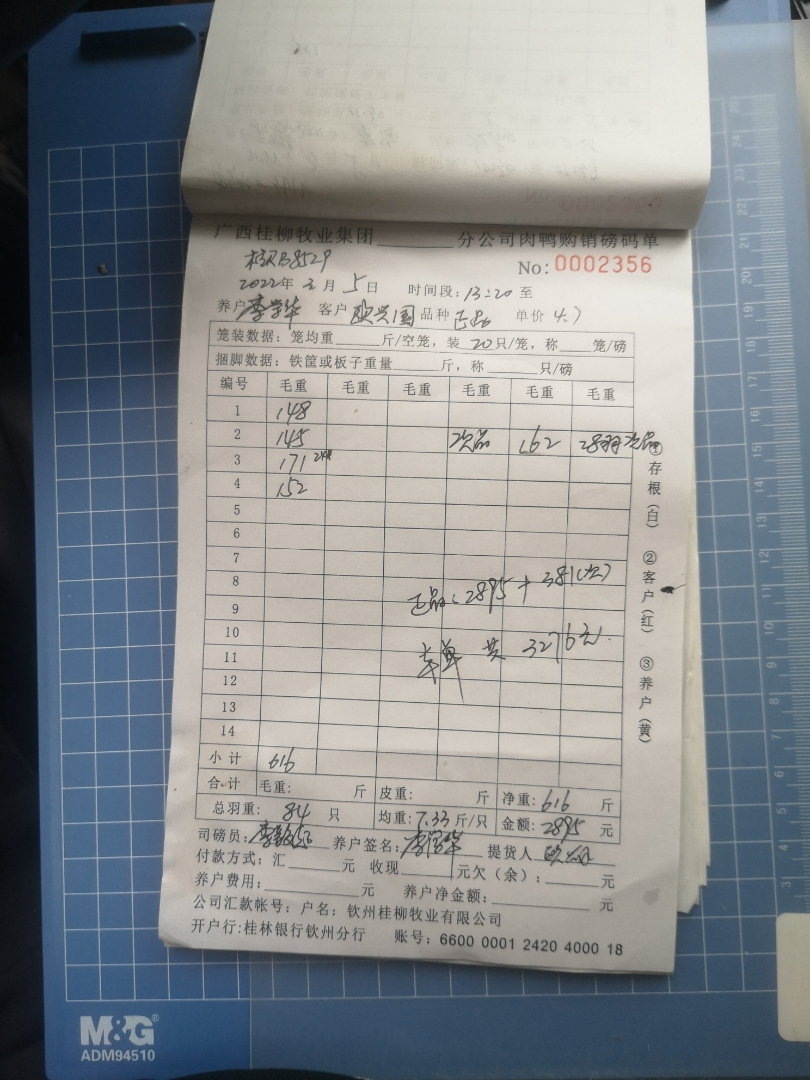 广西桂柳牧业集团________分公司肉鸭购销磅码单
No: 0002356
2022年3月5日 时间段: 13:20 至
养户 李学华 客户 欧兴国 品种 正品 单价 4.7
笼装数据: 笼均重____斤/空笼, 装 20 只/笼, 称____笼/磅
捆脚数据: 铁筐或板子重量____斤, 称____只/磅
编号 毛重 毛重 毛重 毛重 毛重 毛重
1 148
2 145 次品 162 28羽次品
3 171
4 152
5
6
7
8
正品: 2895 + 381
9
10
共 3276元.
11
12
13
14
小计 616
合计 毛重: 斤 皮重: 斤 净重: 616 斤
总羽重: 84 只 均重: 7.33 斤/只 金额: 2895 元
司磅员: 养户签名: 李学华 提货人
付款方式: 汇____元 收现____元欠(余): ____元
养户费用: ____元 养户净金额: ____元
公司汇款帐号: 户名: 钦州桂柳牧业有限公司
开户行:桂林银行钦州分行 账号: 6600 0001 2420 4000 18
①存根(白) ②客户(红) ③养户(黄)
M&G®
ADM94510